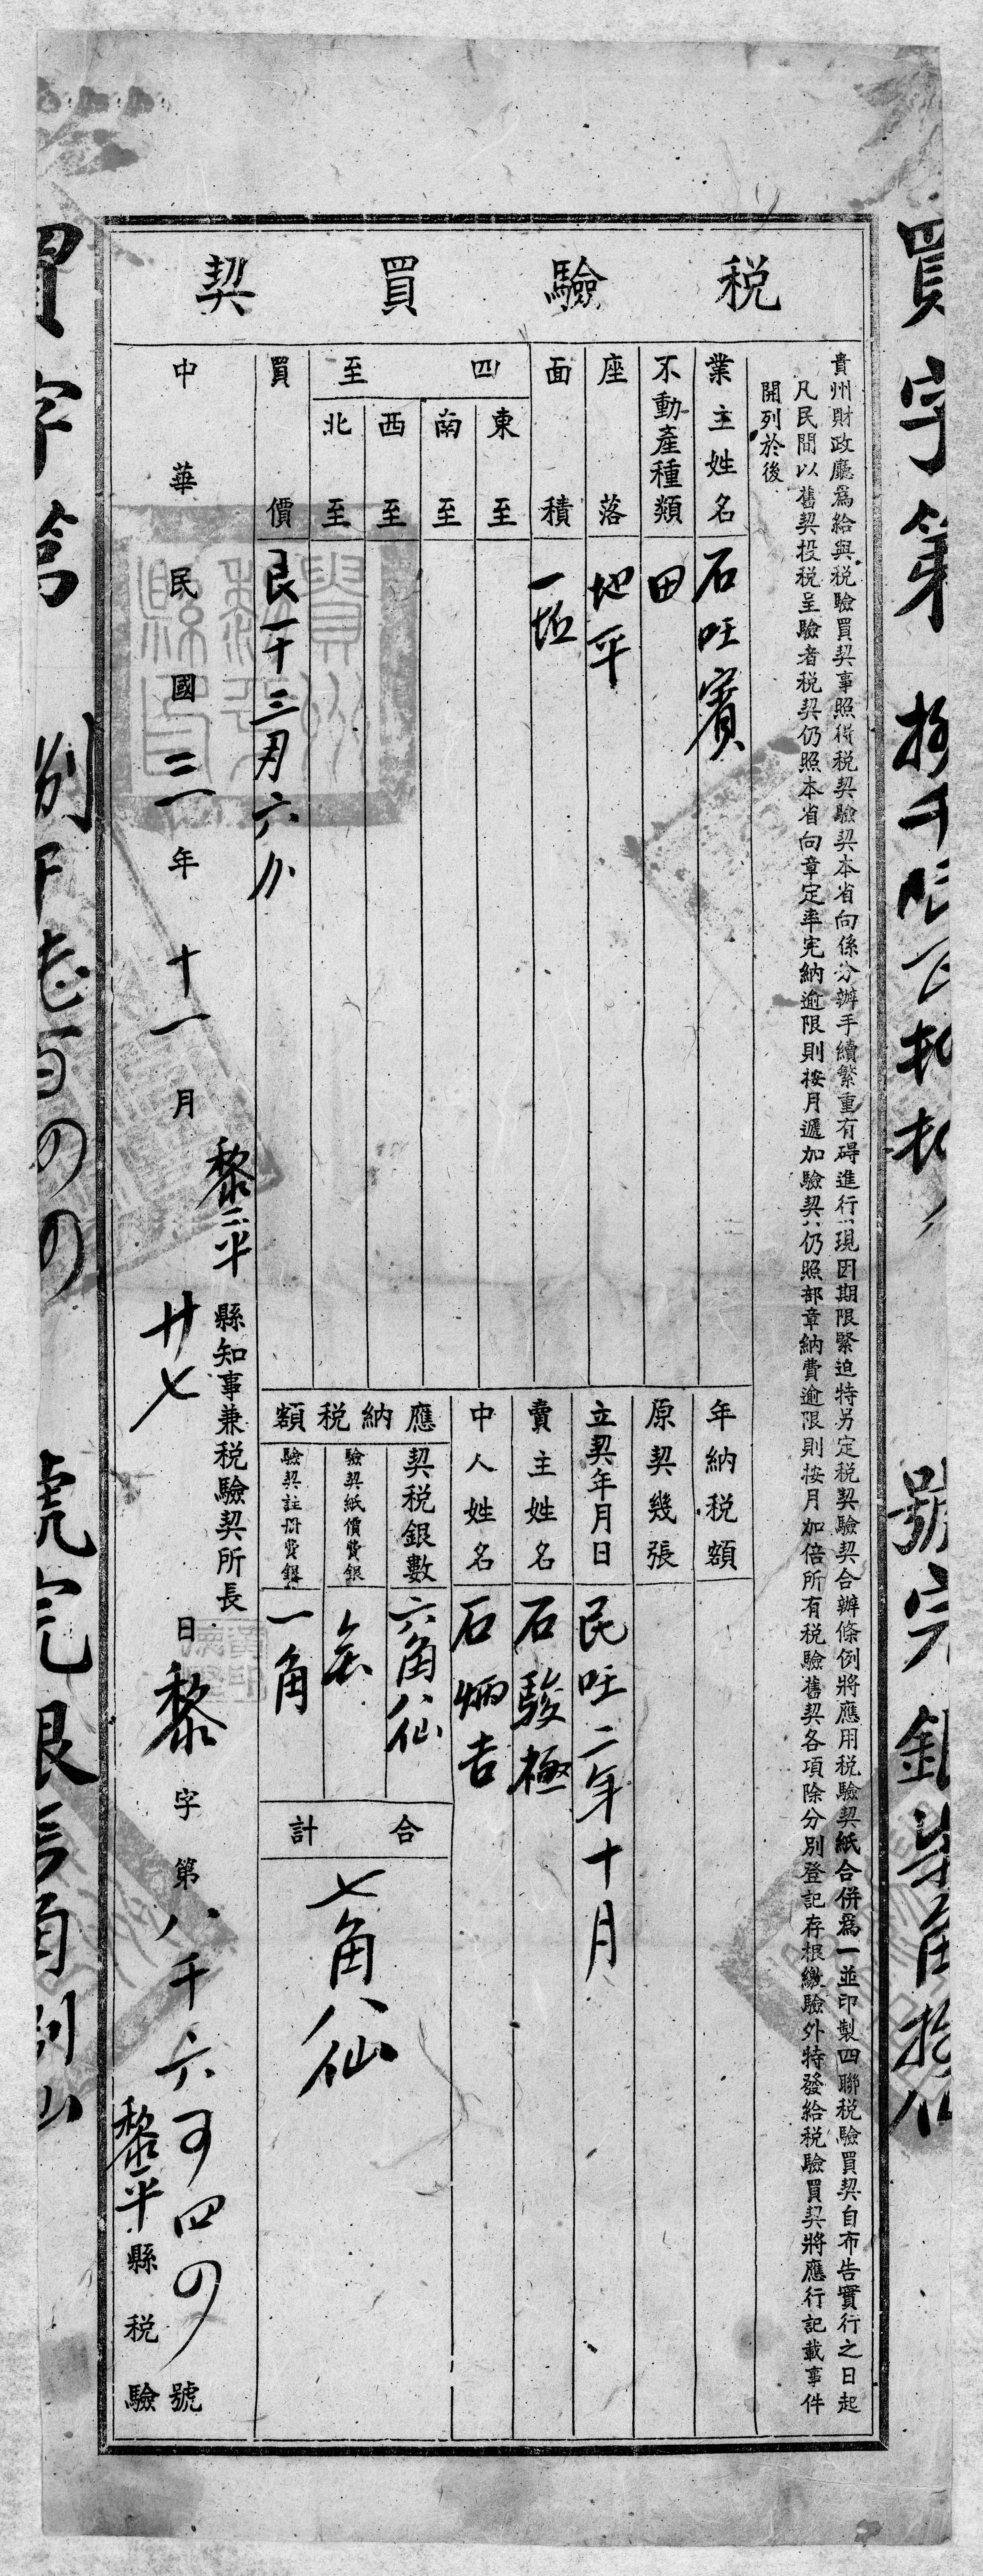 稅驗買契
貴州財政廳爲給與税驗買契事照得税契驗契本省向係分辦手續繁重有碍進行現因期限緊迫特另定税契驗契合辦條例將應用税驗契紙合併爲一並印製四聯税驗買契自布告實行之日起
凡民間以舊契投税呈驗者税契仍照本省向章定率完納逾限則按月遞加驗契仍照部章納費逾限則按月加倍所有税驗舊契各項除分別登記存根繳驗外特發給税驗買契將應行記載事件
開列於後
業主姓名 石旺賓
不動產種類 田
座落 地平
面積 一坵
四至
東至
南至
西至
北至
買價 艮一千三月六分
年納税額
原契幾張
立契年月日 民旺二年十月
賣主姓名 石駿極
中人姓名 石炳吉
應納税額
契税銀數 六角八仙
驗契紙價費銀
驗契註册費銀 一角
合計 七角八仙
黎平縣知事兼税驗契所長
中華民國三年十一月廿七日黎字第八千六百四號
黎平縣税驗
買字第
號完銀